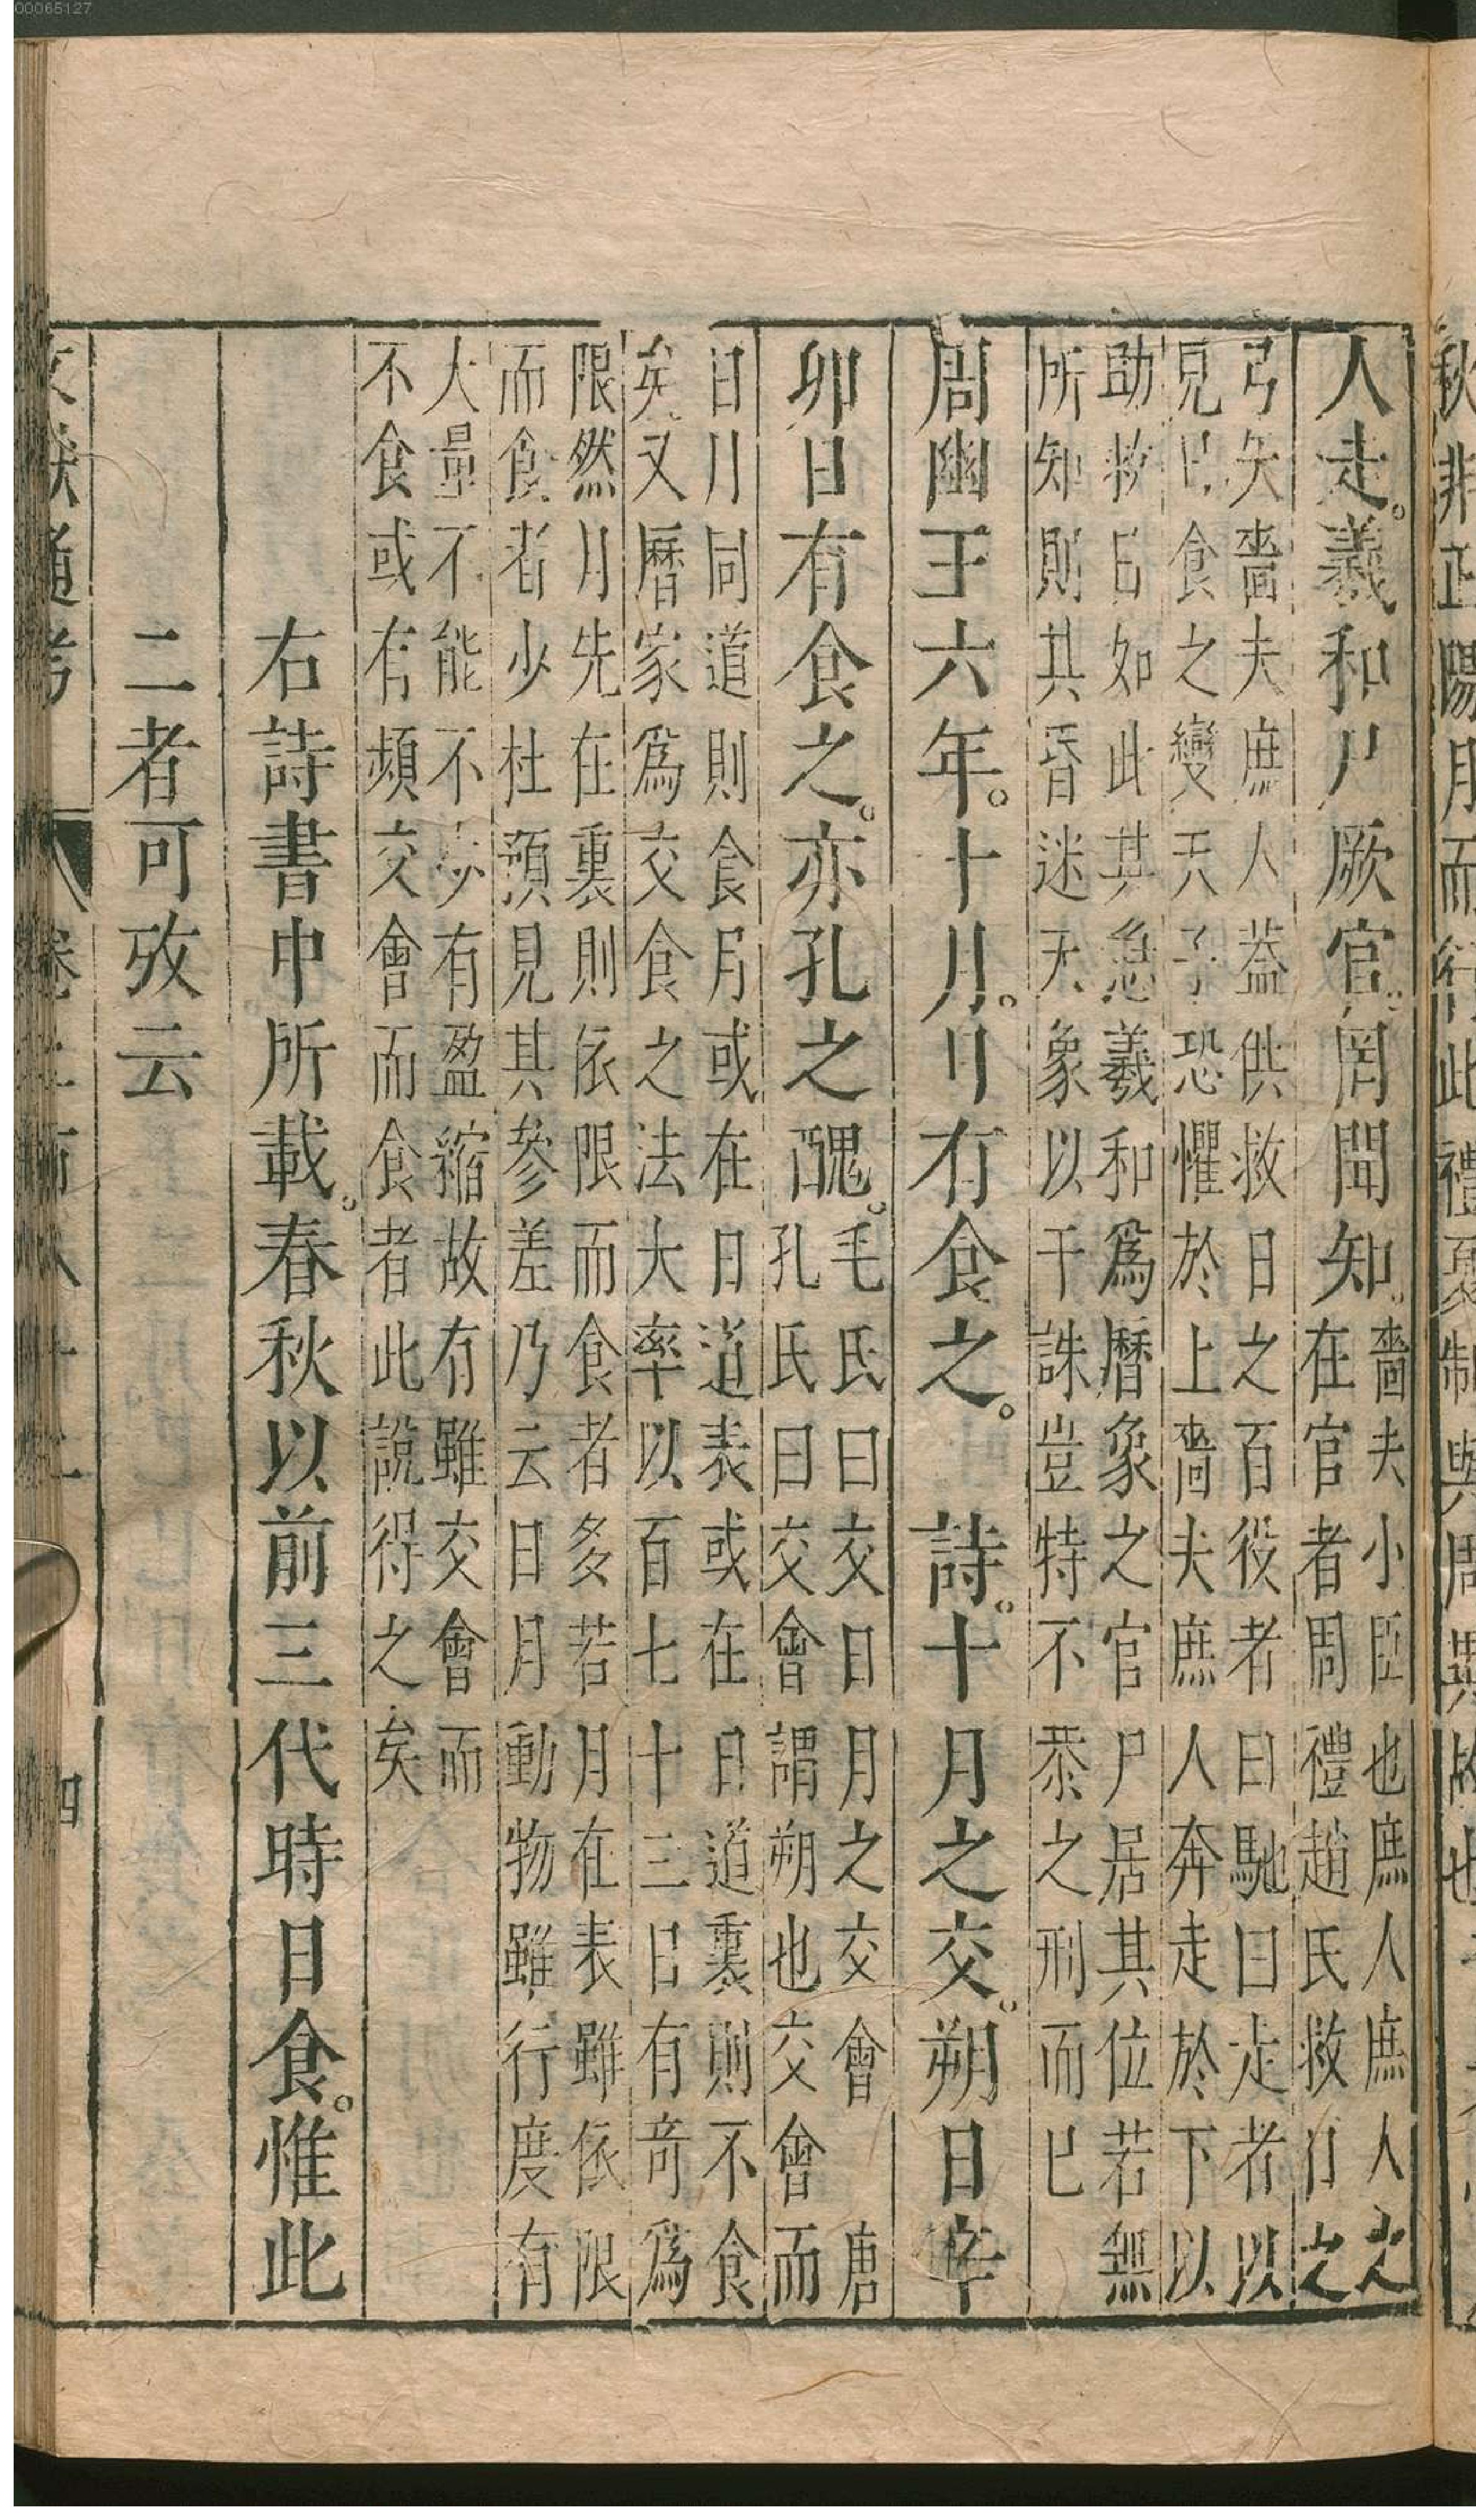 00065127
人走。羲和尸厥官。罔聞知。嗇夫小臣也庶人庶人之
在官者周禮趙氏救日之
弓矢嗇夫庶人蓋供救日之百役者曰馳曰走者以
見日食之變天子恐懼於上嗇夫庶人奔走於下以
助救日如此其急羲和爲曆象之官尸居其位若無
所知則其昏迷天象以干誅豈特不恭之刑而已
周幽王六年。十月。日有食之。 詩。十月之交。朔日辛
卯日有食之。亦孔之醜。毛氏曰交日月之交會 唐
孔氏曰交會謂朔也交會而
日月同道則食月或在日道表或在日道裏則不食
矣又曆家爲交食之法大率以百七十三日有奇爲
限然月先在裏則依限而食者多若月在表雖依限
而食者少杜預見其參差乃云日月動物雖行度有
大量不能不少有盈縮故有雖交會而
不食或有頻交會而食者此說得之矣
右詩書中所載。春秋以前三代時日食。惟此
二者可攷云